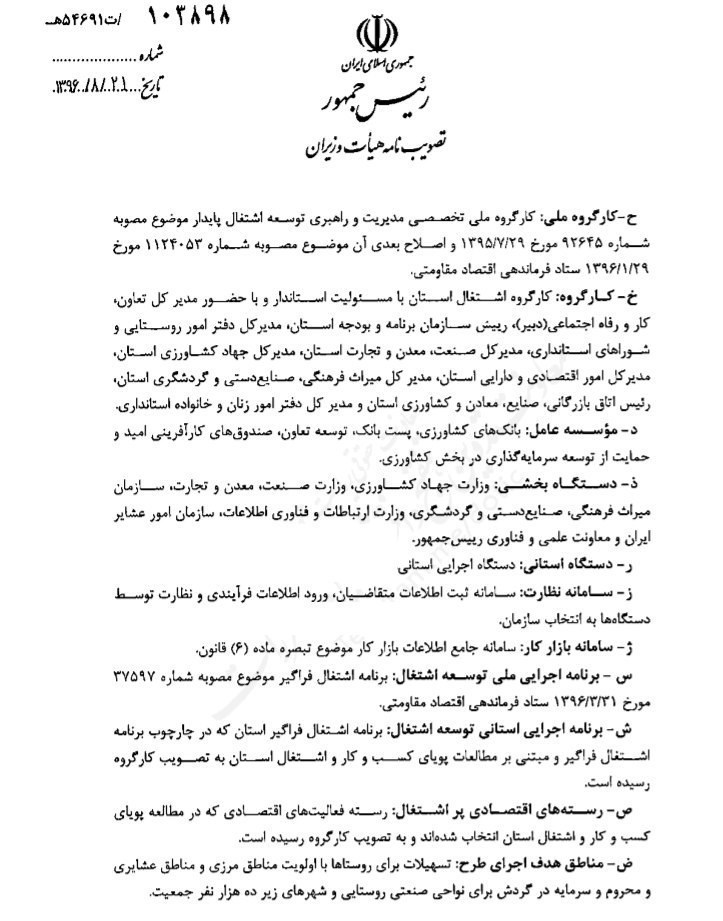 ۱۰۳۸۹۸ /ت۵۴۶۹۱هـ
شماره ....................
تاریخ....۱۳۹۶/۸/۲۱.
جمهوری اسلامی ایران
رئیس جمهور
تصویب نامه هیأت وزیران
ح-کارگروه ملی: کارگروه ملی تخصصی مدیریت و راهبری توسعه اشتغال پایدار موضوع مصوبه
شماره ۹۲۶۴۵ مورخ ۱۳۹۵/۷/۲۹ و اصلاح بعدی آن موضوع مصوبه شماره ۱۱۲۴۰۵۳ مورخ
۱۳۹۶/۱/۲۹ ستاد فرماندهی اقتصاد مقاومتی.
خ-کارگروه: کارگروه اشتغال استان با مسئولیت استاندار و با حضور مدیر کل تعاون،
کار و رفاه اجتماعی(دبیر)، رییس سازمان برنامه و بودجه استان، مدیرکل دفتر امور روستایی و
شوراهای استانداری، مدیرکل صنعت، معدن و تجارت استان، مدیرکل جهاد کشاورزی استان،
مدیرکل امور اقتصادی و دارایی استان، مدیر کل میراث فرهنگی، صنایع‌دستی و گردشگری استان،
رئیس اتاق بازرگانی، صنایع، معادن و کشاورزی استان و مدیر کل دفتر امور زنان و خانواده استانداری.
د- مؤسسه عامل: بانک‌های کشاورزی، پست بانک، توسعه تعاون، صندوق‌های کارآفرینی امید و
حمایت از توسعه سرمایه‌گذاری در بخش کشاورزی.
ذ- دستگاه بخشی: وزارت جهاد کشاورزی، وزارت صنعت، معدن و تجارت، سازمان
میراث فرهنگی، صنایع‌دستی و گردشگری، وزارت ارتباطات و فناوری اطلاعات، سازمان امور عشایر
ایران و معاونت علمی و فناوری رییس‌جمهور.
ر- دستگاه استانی: دستگاه اجرایی استانی
ز- سامانه نظارت: سامانه ثبت اطلاعات متقاضیان، ورود اطلاعات فرآیندی و نظارت توسط
دستگاه‌ها به انتخاب سازمان.
ژ- سامانه بازار کار: سامانه جامع اطلاعات بازار کار موضوع تبصره ماده (۶) قانون.
س - برنامه اجرایی ملی توسعه اشتغال: برنامه اشتغال فراگیر موضوع مصوبه شماره ۳۷۵۹۷
مورخ ۱۳۹۶/۳/۳۱ ستاد فرماندهی اقتصاد مقاومتی.
ش- برنامه اجرایی استانی توسعه اشتغال: برنامه اشتغال فراگیر استان که در چارچوب برنامه
اشتغال فراگیر و مبتنی بر مطالعات پویای کسب و کار و اشتغال استان به تصویب کارگروه
رسیده است.
ص- رسته‌های اقتصادی پر اشتغال: رسته فعالیت‌های اقتصادی که در مطالعه پویای
کسب و کار و اشتغال استان انتخاب شده‌اند و به تصویب کارگروه رسیده است.
ض- مناطق هدف اجرای طرح: تسهیلات برای روستاها با اولویت مناطق مرزی و مناطق عشایری
و محروم و سرمایه در گردش برای نواحی صنعتی روستایی و شهرهای زیر ده هزار نفر جمعیت.